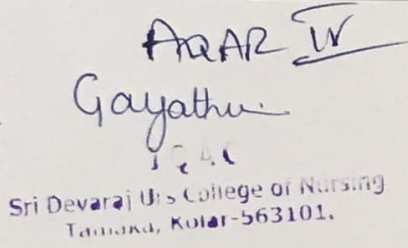 AQAR IV
Gayathri
Sri Devaraj Urs College of Nursing
Tamaka, Kolar-563101.